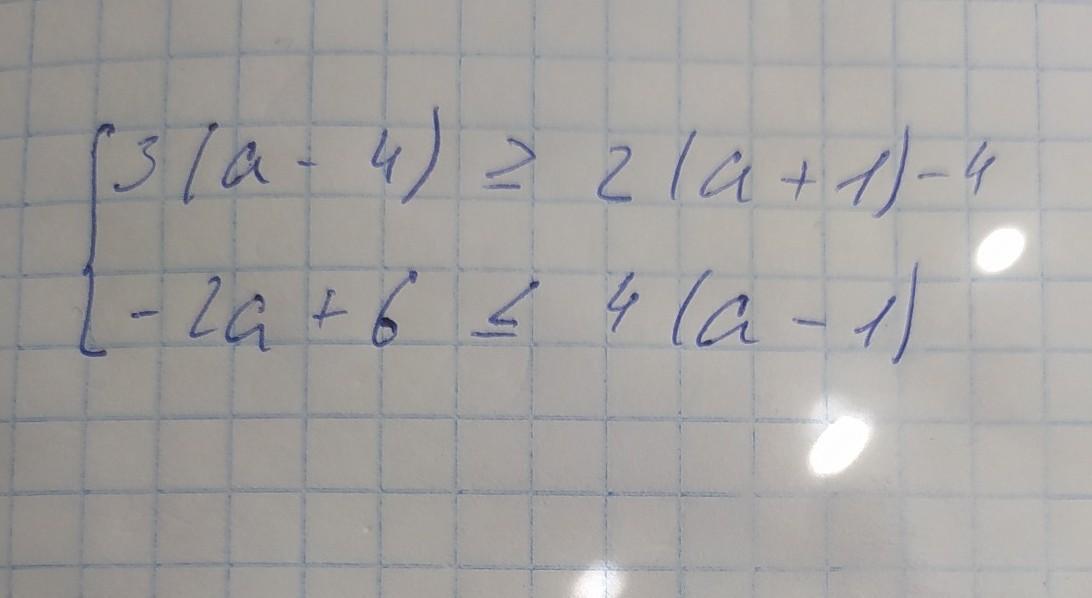 { 3(a - 4) ≥ 2(a + 1) - 4
-2a + 6 ≤ 4(a - 1)